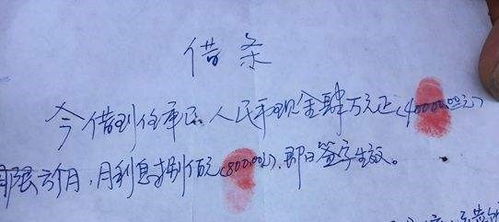 借条
今借到任 人民币现金肆万元正(40000.00元)
期限六个月,月利息捌佰元(800.00元),即日签字生效。